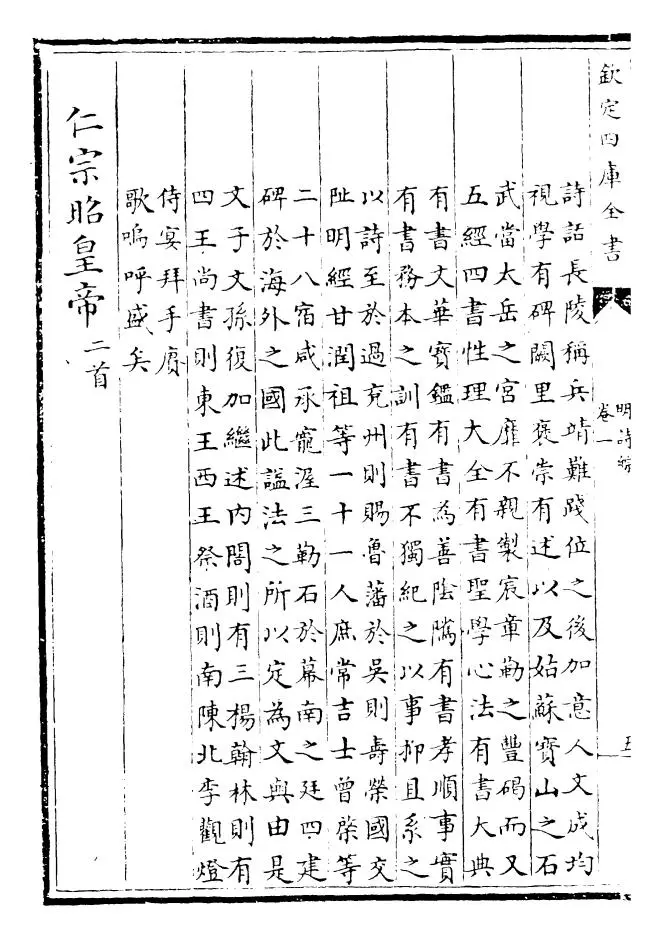 欽定四庫全書
明詩綜
卷一
五
詩話長陵稱兵靖難踐位之後加意人文成均
視學有碑闕里褒崇有述以及姑蘇寶山之石
武當太岳之宫靡不親製宸章勒之豐碣而又
五經四書性理大全有書聖學心法有書大典
有書文華寶鑑有書為善陰隲有書孝順事實
有書務本之訓有書不獨紀之以事抑且系之
以詩至於過兗州則賜魯藩於吳則壽榮國交
阯明經甘潤祖等一十一人庶常吉士曾棨等
二十八宿咸承寵渥三勒石於幕南之廷四建
碑於海外之國此謚法之所以定為文與由是
文子文孫復加繼述内閣則有三楊翰林則有
四王尚書則東王西王祭酒則南陳北李觀燈
侍宴拜手賡
歌嗚呼盛矣
仁宗昭皇帝二首